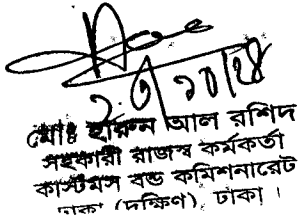 মোঃ হারুন আল রশিদ
সহকারী রাজস্ব কর্মকর্তা
কাস্টমস বন্ড কমিশনারেট
ঢাকা (দক্ষিণ) ঢাকা।